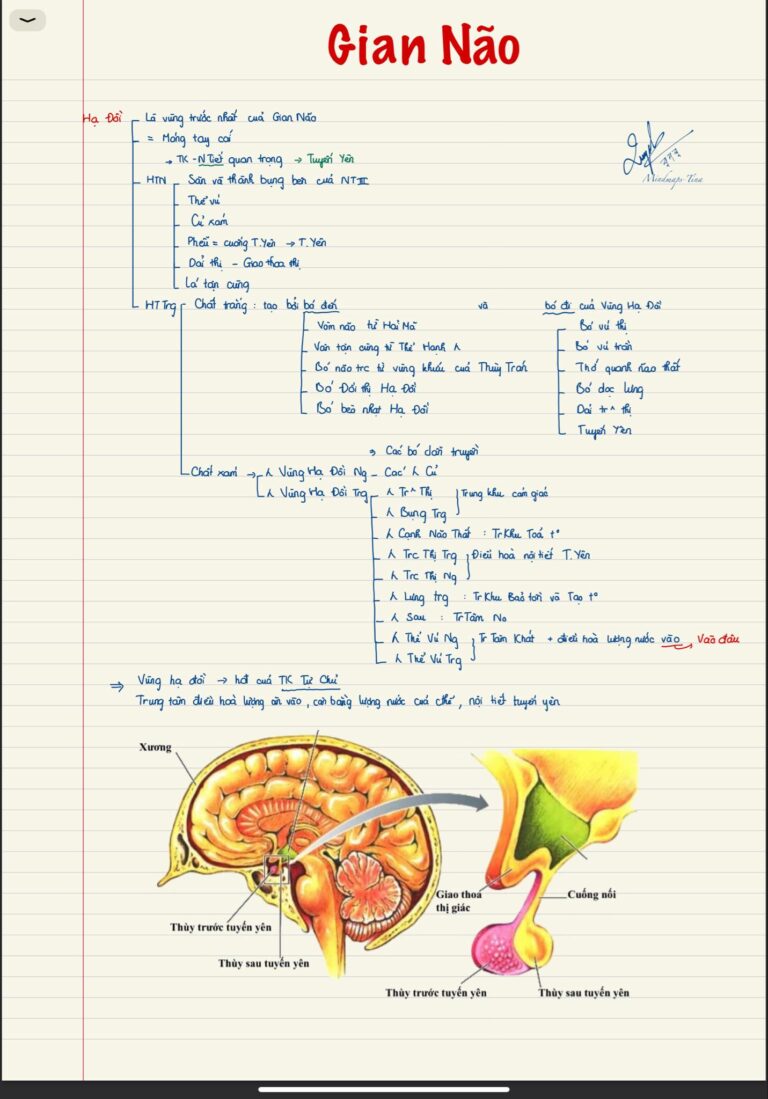 Gian Não
Hạ Đồi
Là vùng trước nhất của Gian Não
= Móng tay cái
→ TK - N Tiết quan trọng → Tuyến Yên
HTN
Sàn và thành bụng bên của NT III
Thể vú
Củ xám
Phễu = cuống T.Yên → T.Yên
Dải thị - Giao thoa thị
Lá tận cùng
HTTrg
Chất trắng : tạo bởi bó đến và bó đi của Vùng Hạ Đồi
Vòm não từ Hải Mã
Vân tận cùng từ Thể Hạnh λ
Bó não trc từ vùng khứu của Thùy Trán
Bó Đồi thị Hạ Đồi
Bó bèo nhạt Hạ Đồi
Bó vú thị
Bó vú trần
Thớ quanh não thất
Bó dọc lưng
Dải tr^ thị
Tuyến Yên
⇒ Các bó dẫn truyền
Chất xám → λ Vùng Hạ Đồi Ng - Các λ Củ
λ Vùng Hạ Đồi Trg
λ Tr^ Thị
λ Bụng Trg
Trung khu cảm giác
λ Cạnh Não Thất : Tr Khu Toả t°
λ Trc Thị Trg
λ Trc Thị Ng
Điều hoà nội tiết T.Yên
λ Lưng trg : Tr Khu Bảo tồn và Tạo t°
λ Sau : Tr Tâm No
λ Thể Vú Ng
λ Thể Vú Trg
Tr Tâm Khát + điều hoà lượng nước vào → Vào đâu
⇒ Vùng hạ đồi → hđ của TK Tự Chủ
Trung tâm điều hoà lượng ăn vào, cân bằng lượng nước của cthể, nội tiết tuyến yên
Mindmaps-Tina
Xương
Thùy trước tuyến yên
Thùy sau tuyến yên
Giao thoa
thị giác
Cuống nối
Thùy trước tuyến yên
Thùy sau tuyến yên